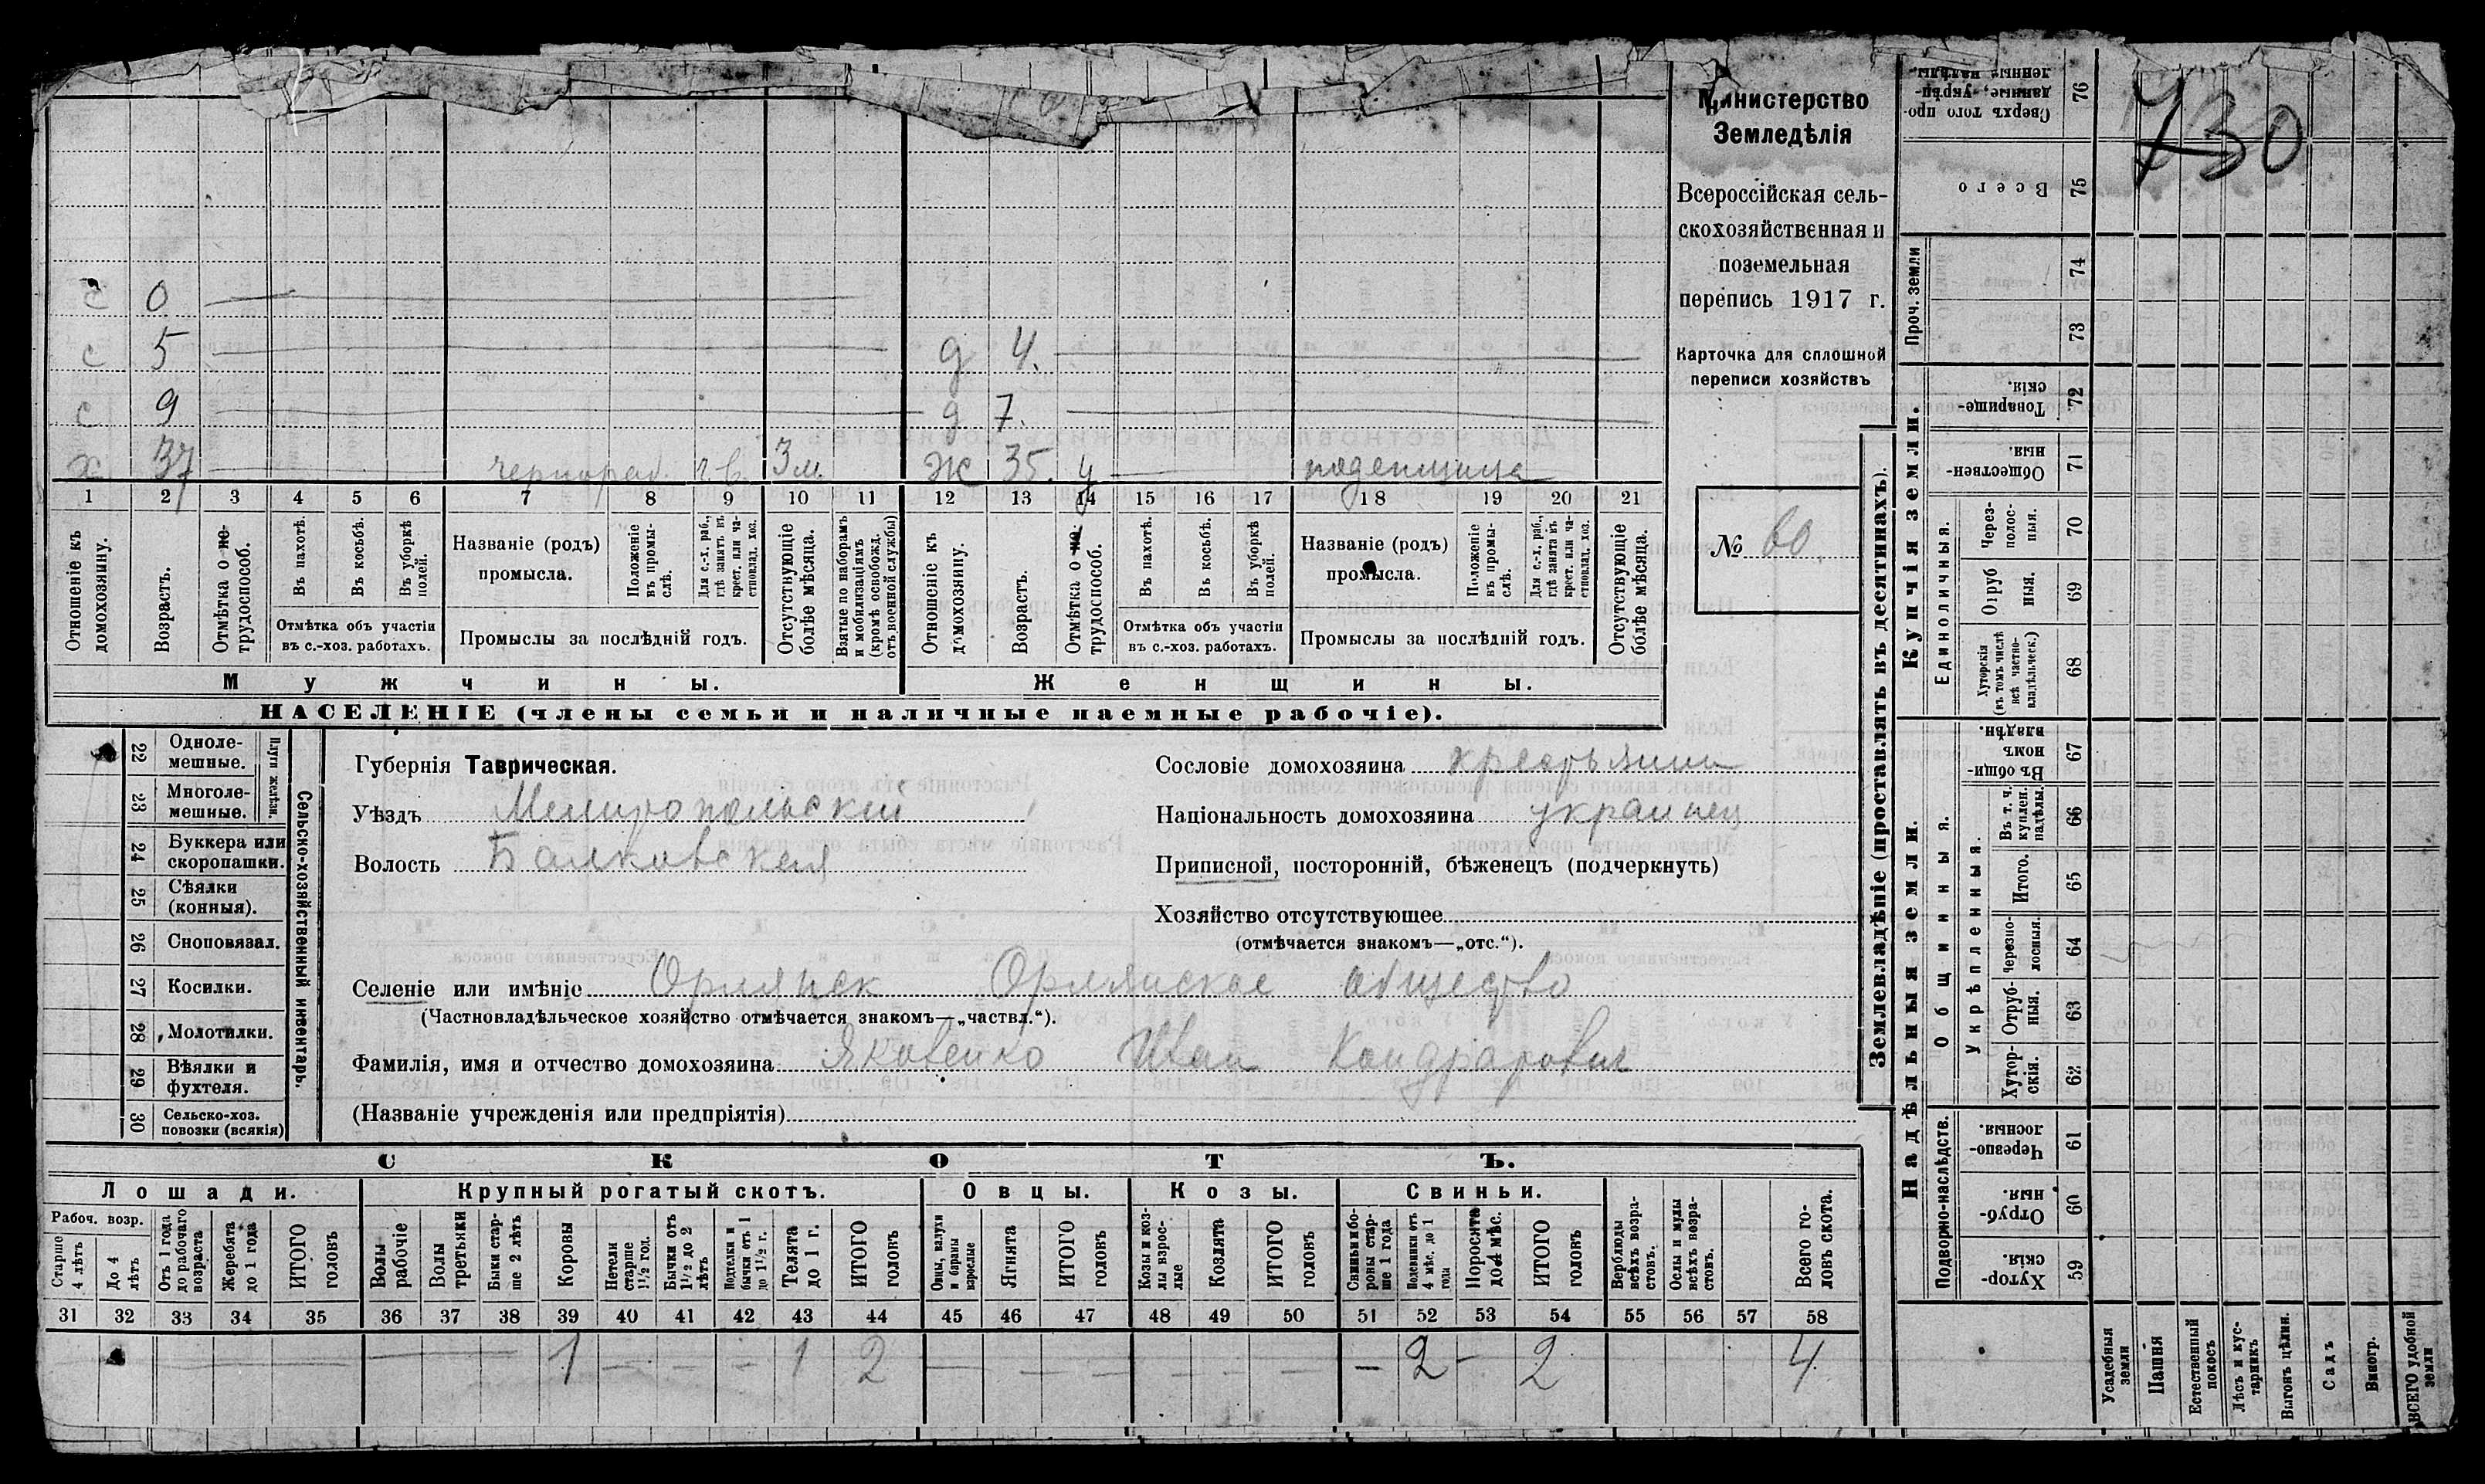 Министерство
Земледѣлія
Всероссійская сель-
скохозяйственная и
поземельная
перепись 1917 г.
Карточка для сплошной
переписи хозяйствъ
№ 60
730
с 0
с 5 д 4.
с 9 д 7.
х 37 чернораб. 3 м. Ж 35. у поденщица
1 2 3 4 5 6 7 8 9 10 11 12 13 14 15 16 17 18 19 20 21
Отношеніе къ домохозяину.
Возрастъ.
Отмѣтка о не-трудоспособ.
Въ пахотѣ.
Въ косьбѣ.
Въ уборкѣ полей.
Отмѣтка объ участіи
въ с.-хоз. работахъ.
Названіе (родъ)
промысла.
Положеніе въ промы-слѣ.
Для с.-х. раб., гдѣ занятъ въ крест. или ча-стновлад. хоз.
Промыслы за послѣдній годъ.
Отсутствующіе болѣе мѣсяца.
Взятые по наборамъ и мобилизаціямъ (кромѣ освобожд. отъ военной службы)
Отношеніе къ домохозяину.
Возрастъ.
Отмѣтка о не трудоспособ.
Въ пахотѣ.
Въ косьбѣ.
Въ уборкѣ полей.
Отмѣтка объ участіи
въ с.-хоз. работахъ.
Названіе (родъ)
промысла.
Положеніе въ промы-слѣ.
Для с.-х. раб., гдѣ занята въ крест. или ча-стновлад. хоз.
Промыслы за послѣдній годъ.
Отсутствующіе болѣе мѣсяца.
Мужчины. Женщины.
НАСЕЛЕНІЕ (члены семьи и наличные наемные рабочіе).
22 Одноле-мешные.
23 Многоле-мешные.
Плуги желѣзн.
24 Буккера или скоропашки.
25 Сѣялки (конныя).
26 Сноповязал.
27 Косилки.
28 Молотилки.
29 Вѣялки и фухтеля.
30 Сельско-хоз. повозки (всякія)
Сельско-хозяйственный инвентарь.
Губернія Таврическая.
Уѣздъ Мелитопольский
Волость Балковская
Сословіе домохозяина крестьянин
Національность домохозяина украинец
Приписной, посторонній, бѣженецъ (подчеркнуть)
Хозяйство отсутствующее
(отмѣчается знакомъ—„отс.“).
Селеніе или имѣніе Орлянск Орлянское общество
(Частновладѣльческое хозяйство отмѣчается знакомъ—„частвл.“).
Фамилія, имя и отчество домохозяина Яковенко Иван Кондратович
(Названіе учрежденія или предпріятія)
СКОТЪ.
Лошади. Крупный рогатый скотъ. Овцы. Козы. Свиньи.
Рабоч. возр.
Старше 4 лѣтъ
До 4 лѣтъ
Отъ 1 года до рабочаго возраста
Жеребята до 1 года
ИТОГО головъ
Волы рабочіе
Волы третьяки
Быки стар-ше 2 лѣтъ
Коровы
Нетели старше 1½ год.
Бычки отъ 1½ до 2 лѣтъ
Подтелки и бычки отъ 1 до 1½ г.
Телята до 1 г.
ИТОГО головъ
Овцы, валухи и бараны взрослые
Ягнята
ИТОГО головъ
Козы и коз-лы взрос-лые
Козлята
ИТОГО головъ
Свиньи и бо-ровы стар-ше 1 года
Подсвинки отъ 4 мѣс. до 1 года
Поросята до 4 мѣс.
ИТОГО головъ
Верблюды всѣхъ возра-стовъ.
Ослы и мулы всѣхъ возра-стовъ.
Всего го-ловъ скота.
31 32 33 34 35 36 37 38 39 40 41 42 43 44 45 46 47 48 49 50 51 52 53 54 55 56 57 58
1 – – – 1 2 – – – – – – – 2 – 2 4
Землевладѣніе (проставлять въ десятинахъ).
Купчія земли.
Надѣльныя земли.
76 Сверхъ того про-данные, укрѣп-ленные надѣлы.
75 Всего
Проч. земли
74
73
72 Товарище-скія.
71 Обществен-ныя.
Единоличныя.
70 Через-полос-ныя.
69 Отруб ныя.
68 Хуторскія (въ томъ числѣ всѣ частно-владѣльческ.)
Общинныя.
67 Въ общи-номъ владѣн.
66 Въ т. ч. куплен. надѣлы.
Укрѣпленныя.
65 Итого.
64 Черезпо-лосныя.
63 Отруб-ныя.
62 Хутор-скія.
Подворно-наслѣдств.
61 Черезпо-лосныя.
60 Отруб-ныя.
59 Хутор-скія.
Усадебныя земли
Пашня
Естественный покосъ
Лѣсъ и кус-тарникъ
Выгонъ цѣлин.
Садъ
Виногр.
ВСЕГО удобной земли